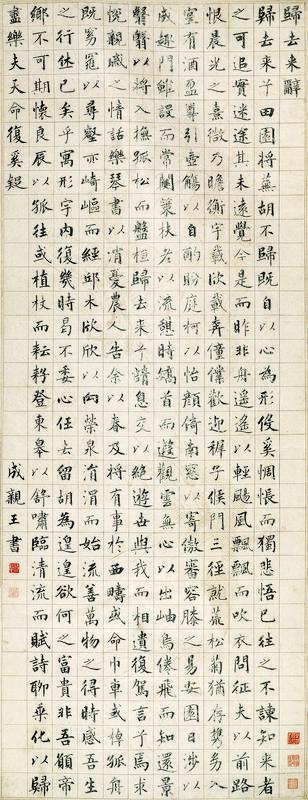 歸去來辭
歸去來兮田園將蕪胡不歸既自以心為形役奚惆悵而獨悲悟已往之不諫知來者
之可追實迷途其未遠覺今是而昨非舟遙遙以輕颺風飄飄而吹衣問征夫以前路
恨晨光之熹微乃瞻衡宇載欣載奔僮僕歡迎稚子候門三徑就荒松菊猶存攜幼入
室有酒盈罇引壺觴以自酌眄庭柯以怡顏倚南窗以寄傲審容膝之易安園日涉以
成趣門雖設而常關策扶老以流憩時矯首而遐觀雲無心以出岫鳥倦飛而知還景
翳翳以將入撫孤松而盤桓歸去來兮請息交以絕遊世與我而相遺復駕言兮焉求
悅親戚之情話樂琴書以消憂農人告余以春及將有事於西疇或命巾車或棹孤舟
既窈窕以尋壑亦崎嶇而經邱木欣欣以向榮泉涓涓而始流善萬物之得時感吾生
之行休已矣乎寓形宇內復幾時曷不委心任去留胡為遑遑欲何之富貴非吾願帝
鄉不可期懷良辰以孤往或植杖而耘耔登東皋以舒嘯臨清流而賦詩聊乘化以歸
盡樂夫天命復奚疑
成親王書